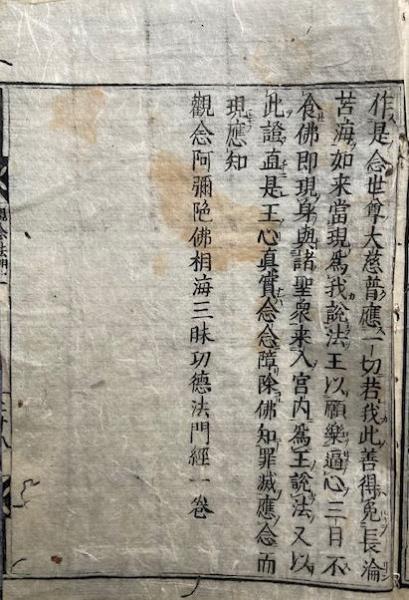 作是念世尊大慈普應一切若我此善得免長淪
苦海如来當現爲我說法王以願樂逼心三日不
食佛即現身與諸聖衆来入宮内爲王說法又以
此證直是王心真實念念障除佛知罪滅應念而
現應知
觀念阿彌陁佛相海三昧功德法門經一卷
觀念法門
二十八